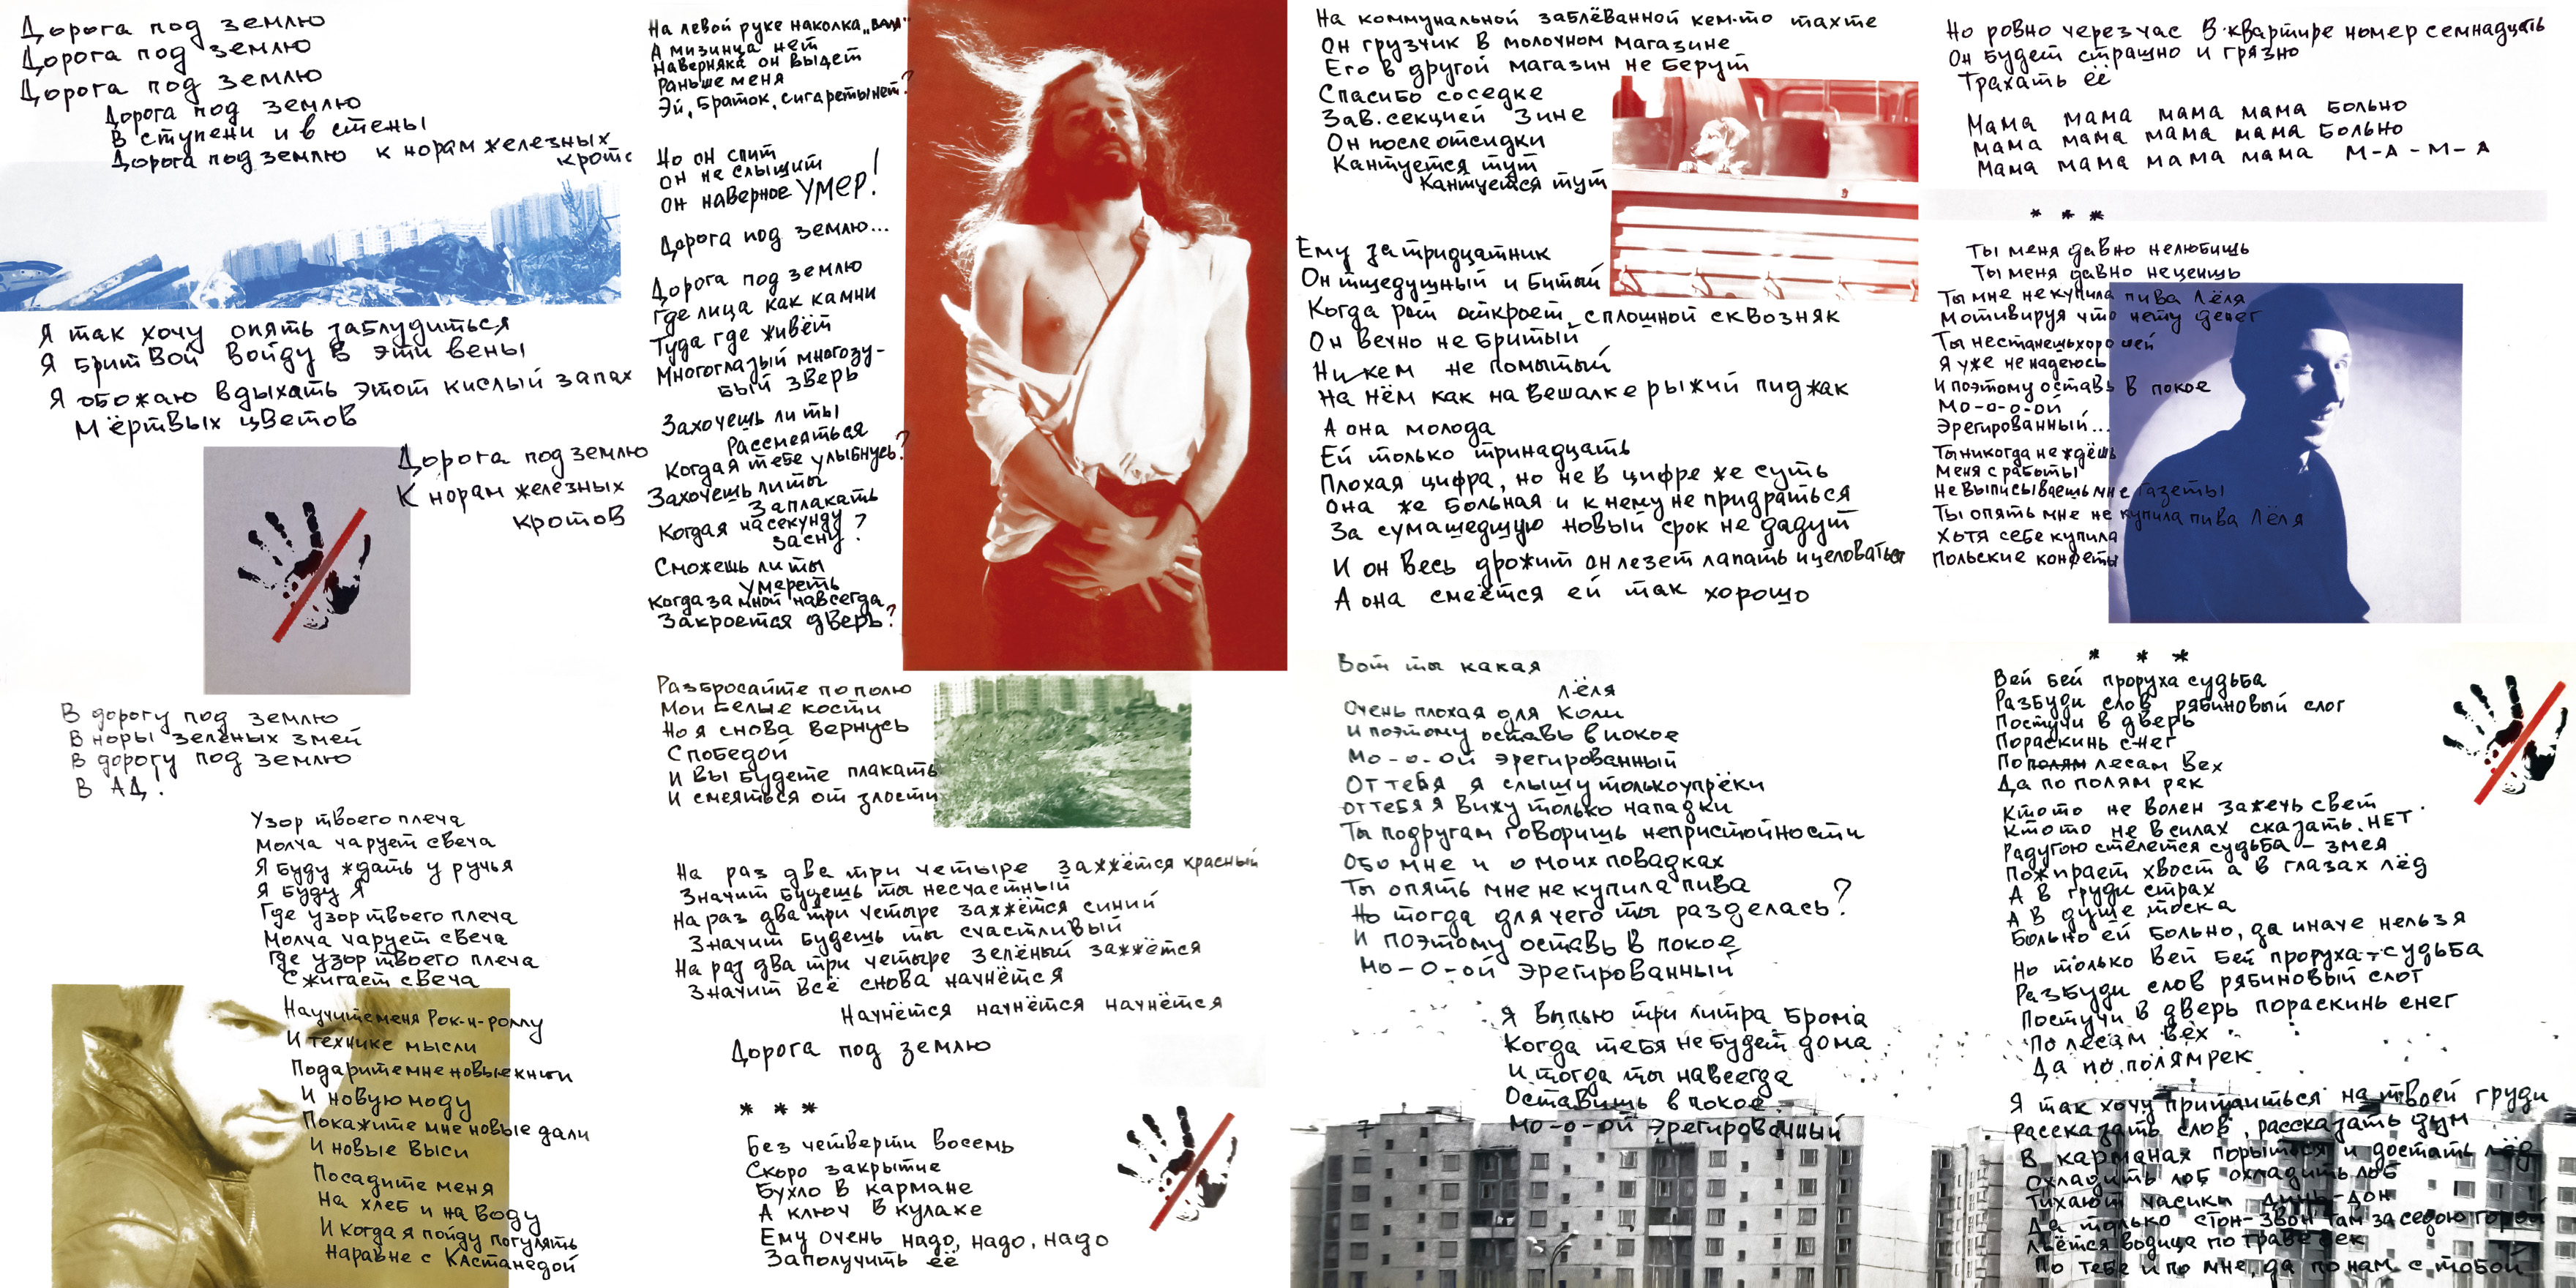 Дорога под землю
Дорога под землю
Дорога под землю
Дорога под землю
В ступени и в стены
Дорога под землю к норам железных
Я так хочу опять заблудиться
Я бритвой войду в эти вены
Я обожаю вдыхать этот кислый запах
Мёртвых цветов
Дорога под землю
К норам железных
кротов
В дорогу под землю
В норы зелёных змей
В дорогу под землю
В АД!
Узор твоего плеча
Молча чарует свеча
Я буду ждать у ручья
Я буду Я
Где узор твоего плеча
Молча чарует свеча
Где узор твоего плеча
Сжигает свеча
Научите меня Рок-н-роллу
И технике мысли
Подарите мне новые книги
И новую моду
Покажите мне новые дали
И новые выси
Посадите меня
На хлеб и на воду
И когда я пойду погулять
Наравне с Кастанедой
На левой руке наколка „Валя"
А мизинца нет
Наверняка он выйдет
Раньше меня
Эй, браток, сигареты нет?
Но он спит
Он не слышит
Он наверное УМЕР!
Дорога под землю...
Дорога под землю
Где лица как камни
Туда где живёт
Многоглазый многозу-
бый зверь
Захочешь ли ты
Рассмеяться
Когда я тебе улыбнусь?
Захочешь ли ты
Заплакать
Когда я на секунду
засну?
Сможешь ли ты
умереть
Когда за мной навсегда
Закроется дверь?
Разбросайте по полю
Мои белые кости
Но я снова вернусь
С победой
И вы будете плакать
И смеяться от злости
На раз два три четыре зажжётся красный
Значит будешь ты несчастный
На раз два три четыре зажжётся синий
Значит будешь ты счастливый
На раз два три четыре зелёный зажжётся
Значит всё снова начнётся
Начнётся начнётся начнётся
Дорога под землю
* * *
Без четверти восемь
Скоро закрытие
Бухло в кармане
А ключ в кулаке
Ему очень надо, надо, надо
Заполучить её
На коммунальной заблёванной кем-то тахте
Он грузчик в молочном магазине
Его в другой магазин не берут
Спасибо соседке
Зав. секцией Зине
Он после отсидки
Кантуется тут
Кантуется тут
Ему за тридцатник
Он тщедушный и битый
Когда рот откроет, сплошной сквозняк
Он вечно не бритый
Никем не помытый
На нём как на вешалке рыжий пиджак
А она молода
Ей только тринадцать
Плохая цифра, но не в цифре же суть
Она же больная и к нему не придраться
За сумашедшую новый срок не дадут
И он весь дрожит он лезет лапать и целоваться
А она смеётся ей так хорошо
Но ровно через час В квартире номер семнадцать
Он будет страшно и грязно
Трахать её
Мама мама мама мама больно
мама мама мама мама больно
Мама мама мама мама М-А-М-А
* * *
Ты меня давно не любишь
Ты меня давно не ценишь
Ты мне не купила пива Лёля
Мотивируя что нету денег
Ты не станешь хорошей
Я уже не надеюсь
И поэтому оставь в покое
Мо-о-о-ой
Эрегированный...
Ты никогда не ждёшь
Меня с работы
Не выписываешь мне газеты
Ты опять мне не купила пива Лёля
Хотя себе купила
Польские конфеты
Вот ты какая
Лёля
Очень плохая для Коли
И поэтому оставь в покое
Мо-о-ой эрегированный
От тебя я слышу только упрёки
От тебя я вижу только нападки
Ты подругам говоришь непристойности
Обо мне и о моих повадках
Ты опять мне не купила пива
Но тогда для чего ты разделась?
И поэтому оставь в покое
Мо-о-ой эрегированный
Я выпью три литра брома
Когда тебя не будет дома
И тогда ты навсегда
Оставишь в покое
Мо-о-ой эрегированный
* * *
Вей бей проруха судьба
Разбуди слов рябиновый слог
Постучи в дверь
Пораскинь снег
По лесам вех
Да по полям рек
Кто то не волен зажечь свет
Кто то не в силах сказать НЕТ
Радугою стелется судьба - змея
Пожирает хвост а в глазах лёд
А в груди страх
А в душе тоска
Больно ей больно, да иначе нельзя
Но только Вей Бей проруха-судьба
Разбуди слов рябиновый слог
Постучи в дверь пораскинь снег
По лесам вех
Да по полям рек
Я так хочу притаиться на твоей груди
Рассказать слов, рассказать дум
В карманах порыться и достать лёд
Охладить лоб охладить лоб
Тихают часики динь-дон
Да только стон-звон там за седою
Льётся водица по траве век
По тебе и по мне, да по нам с тобой